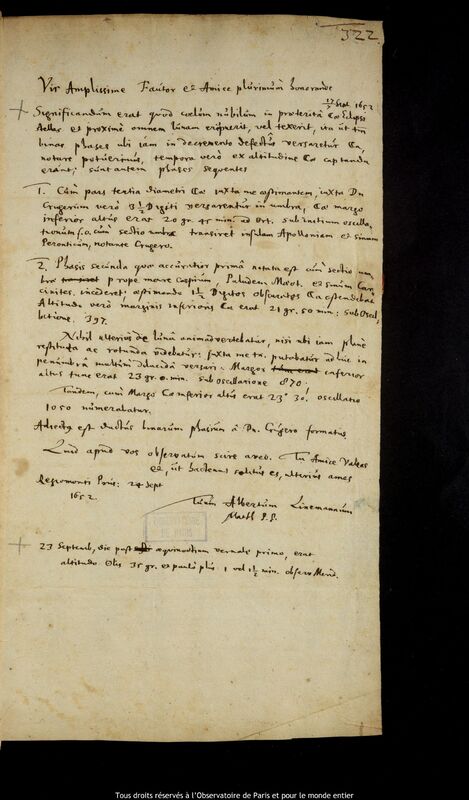 322
Vir Amplissime Fautor et Amice plurimùm honorande
1652
Significandum erat quod coelum nubilum in praeterita Eclipsi
et proximè omnem Lunam eripuerit, vel texerit, ita ut tm
binas phases ubi iam in decremento defectus versaretur
notare potuerimus, tempora verò ex altitudine captanda
erant; sunt autem phases sequentes
1. Cùm pars tertia diametri iuxta me aestimantem, iuxta Dn
Crugerum verò 3½ Digiti versarentur in umbra, margo
inferior altus erat 20 gr. 45 min. ad Ort. sub initium oscilla
tionum f.o. cùm sectio umbrae transiret insulam Apolloniam et sinum
notante Crugero.
2. Phasis secunda quae accuratior primâ notata est cùm sectio um
brae prope mare caspium, Paludem Maeot. et sinum
incederet; aestimando 1½ Digitos obscuratos ostendebat
Altitudo verò marginis inferioris erat 21 gr. 50 min: sub Oscil
latione 397.
Nihil ulterius de lunâ animadvertebatur, nisi ubi iam planè
restituta ac rotunda videbatur; iuxta me tn. putabatur adhuc in
penumbrâ multùm dilucidâ versari: Margo inferior
altus tunc erat 23 gr. 0. min. sub oscillatione 870.
Tandem, cum Margo inferior altus erat 23° 30', oscillatio
1050 numerabatur.
Adiectus est ductus binarum phasium à Dn. Crügero formatus,
Quid apud vos observatum scire aveo. Tu Amice Valeas
et, ut hactenus solitus es, ulterius ames
Regiomonti Boruss: 24 Sept
1652.
Tuum Albertum Linemannum
Math. P.P.
OBSERVATOIRE DE PARIS
23 Septemb, die post aequinoctium vernale primo, erat
altitudo Olis 35 gr. et paulò plus 1 vel 1½ min. observ Merid.
Tous droits réservés à l'Observatoire de Paris et pour le monde entier